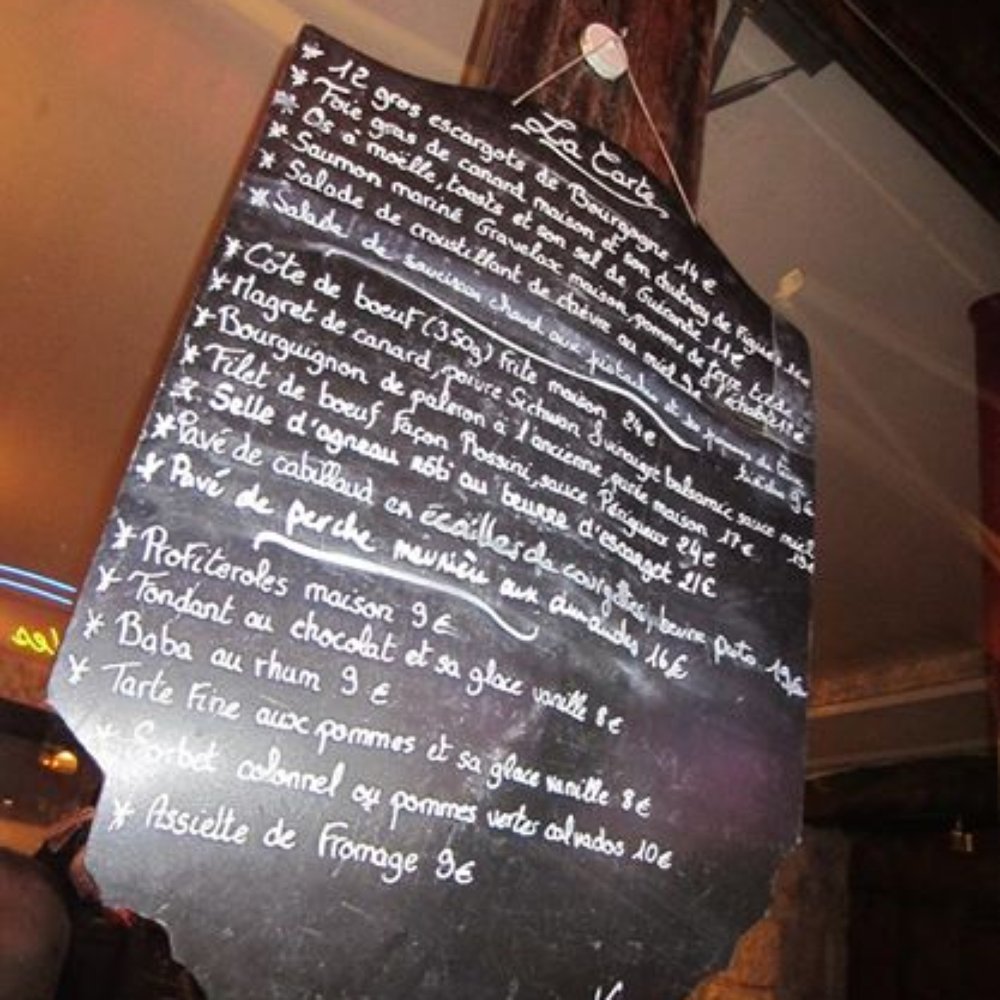 La Carte
* 12 gros escargots de Bourgogne 14 €
* Foie gras de canard maison et son chutney de Figues 16€
* Os à moëlle, toasts et son sel de Guérande 11€
* Saumon mariné Gravelax maison, pomme de terre
* Salade de croustillant de chèvre au miel 9€
* Salade de saucisson chaud aux pistaches et pommes de terre 9€
* Côte de boeuf (350g) frite maison 24€
* Magret de canard, poivre Sichuan, vinaigre balsamic, sauce
* Bourguignon de paleron à l'ancienne, purée maison 17€
* Filet de boeuf Façon Rossini, sauce Périgueux 24€
* Selle d'agneau rôti au beurre d'escargot 21€
* Pavé de cabillaud en écailles de courgettes, beurre
* Pavé de perche meunière aux amandes 16€
* Profiteroles maison 9€
* Fondant au chocolat et sa glace vanille 8€
* Baba au rhum 9 €
* Tarte Fine aux pommes et sa glace vanille 8€
* Sorbet colonnel ou pommes vertes calvados 10€
* Assiette de Fromage 9€